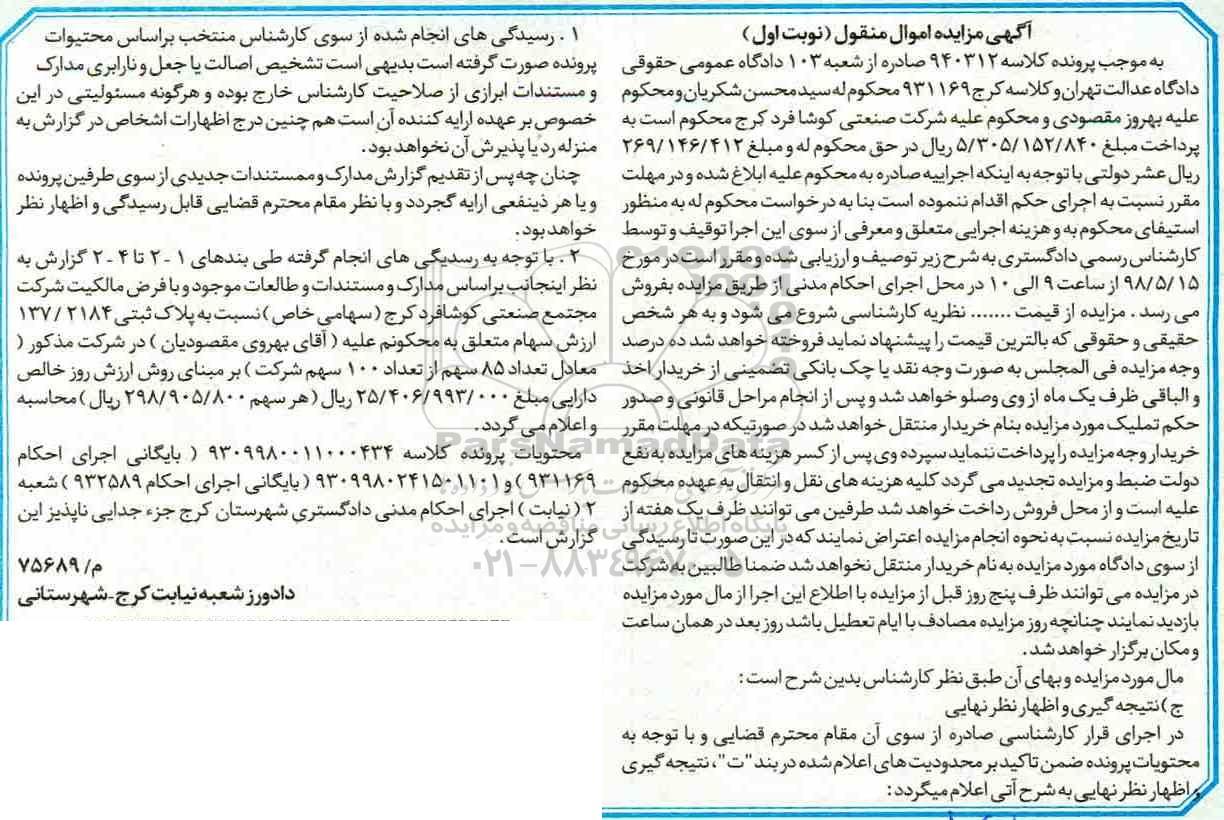 آگهی مزایده اموال منقول (نوبت اول)
به موجب پرونده کلاسه ۹۴۰۳۱۲ صادره از شعبه ۱۰۳ دادگاه عمومی حقوقی
دادگاه عدالت تهران و کلاسه کرج ۹۳۱۱۶۹ محکوم له سید محسن شکریان و محکوم
علیه بهروز مقصودی و محکوم علیه شرکت صنعتی کوشا فرد کرج محکوم است به
پرداخت مبلغ ۵/۳۰۵/۱۵۲/۸۴۰ ریال در حق محکوم له و مبلغ ۲۶۹/۱۴۶/۴۱۲
ریال عشر دولتی با توجه به اینکه اجراییه صادره به محکوم علیه ابلاغ شده و در مهلت
مقرر نسبت به اجرای حکم اقدام ننموده است بنا به درخواست محکوم له به منظور
استیفای محکوم به و هزینه اجرایی متعلق و معرفی از سوی این اجرا توقیف و توسط
کارشناس رسمی دادگستری به شرح زیر توصیف و ارزیابی شده و مقرر است در مورخ
۹۸/۵/۱۵ از ساعت ۹ الی ۱۰ در محل اجرای احکام مدنی از طریق مزایده بفروش
می رسد . مزایده از قیمت ....... نظریه کارشناسی شروع می شود و به هر شخص
حقیقی و حقوقی که بالترین قیمت را پیشنهاد نماید فروخته خواهد شد ده درصد
وجه مزایده فی المجلس به صورت وجه نقد یا چک بانکی تضمینی از خریدار اخذ
و الباقی ظرف یک ماه از وی وصلو خواهد شد و پس از انجام مراحل قانونی و صدور
حکم تملیک مورد مزایده بنام خریدار منتقل خواهد شد در صورتیکه در مهلت مقرر
خریدار وجه مزایده را پرداخت ننماید سپرده وی پس از کسر هزینه های مزایده به نفع
دولت ضبط و مزایده تجدید می گردد کلیه هزینه های نقل و انتقال به عهده محکوم
علیه است و از محل فروش رداخت خواهد شد طرفین می توانند ظرف یک هفته از
تاریخ مزایده نسبت به نحوه انجام مزایده اعتراض نمایند که در این صورت تا رسیدگی
از سوی دادگاه مورد مزایده به نام خریدار منتقل نخواهد شد ضمنا طالبین به شرکت
در مزایده می توانند ظرف پنج روز قبل از مزایده با اطلاع این اجرا از مال مورد مزایده
بازدید نمایند چنانچه روز مزایده مصادف با ایام تعطیل باشد روز بعد در همان ساعت
و مکان برگزار خواهد شد .
مال مورد مزایده و بهای آن طبق نظر کارشناس بدین شرح است :
ج ) نتیجه گیری و اظهار نظر نهایی
در اجرای قرار کارشناسی صادره از سوی آن مقام محترم قضایی و با توجه به
محتویات پرونده ضمن تاکید بر محدودیت های اعلام شده در بند "ت" ، نتیجه گیری
و اظهار نظر نهایی به شرح آتی اعلام میگردد :
۱ . رسیدگی های انجام شده از سوی کارشناس منتخب براساس محتیوات
پرونده صورت گرفته است بدیهی است تشخیص اصالت یا جعل و نارابری مدارک
و مستندات ابرازی از صلاحیت کارشناس خارج بوده و هرگونه مسئولیتی در این
خصوص بر عهده ارایه کننده آن است هم چنین درج اظهارات اشخاص در گزارش به
منزله رد یا پذیرش آن نخواهد بود .
چنان چه پس از تقدیم گزارش مدارک و ممستندات جدیدی از سوی طرفین پرونده
و یا هر ذینفعی ارایه گجردد و با نظر مقام محترم قضایی قابل رسیدگی و اظهار نظر
خواهد بود .
۲ . با توجه به رسدیگی های انجام گرفته طی بندهای ۱ - ۲ تا ۴ - ۲ گزارش به
نظر اینجانب براساس مدارک و مستندات و طالعات موجود و با فرض مالکیت شرکت
مجتمع صنعتی کوشافرد کرج (سهامی خاص ) نسبت به پلاک ثبتی ۲۱۸۴ / ۱۳۷
ارزش سهام متعلق به محکونم علیه ( آقای بهروی مقصودیان ) در شرکت مذکور (
معادل تعداد ۸۵ سهم از تعداد ۱۰۰ سهم شرکت ) بر مبنای روش ارزش روز خالص
دارایی مبلغ ۲۵/۴۰۶/۹۹۳/۰۰۰ ریال ( هر سهم ۲۹۸/۹۰۵/۸۰۰ ریال ) محاسبه
و اعلام می گردد .
محتویات پرونده کلاسه ۹۳۰۹۹۸۰۰۱۱۰۰۰۴۳۴ ( بایگانی اجرای احکام
۹۳۱۱۶۹ ) و ۹۳۰۹۹۸۰۲۴۱۵۰۱۱۰۱ ( بایگانی اجرای احکام ۹۳۲۵۸۹ ) شعبه
۲ ( نیابت ) اجرای احکام مدنی دادگستری شهرستان کرج جزء جدایی ناپذیز این
گزارش است .
م/ ۷۵۶۸۹
دادورز شعبه نیابت کرج - شهرستانی
ParsNamadData
پایگاه اطلاع رسانی مناقصه و مزایده
۰۲۱-۸۸۳۴۹۶۷۰-۵